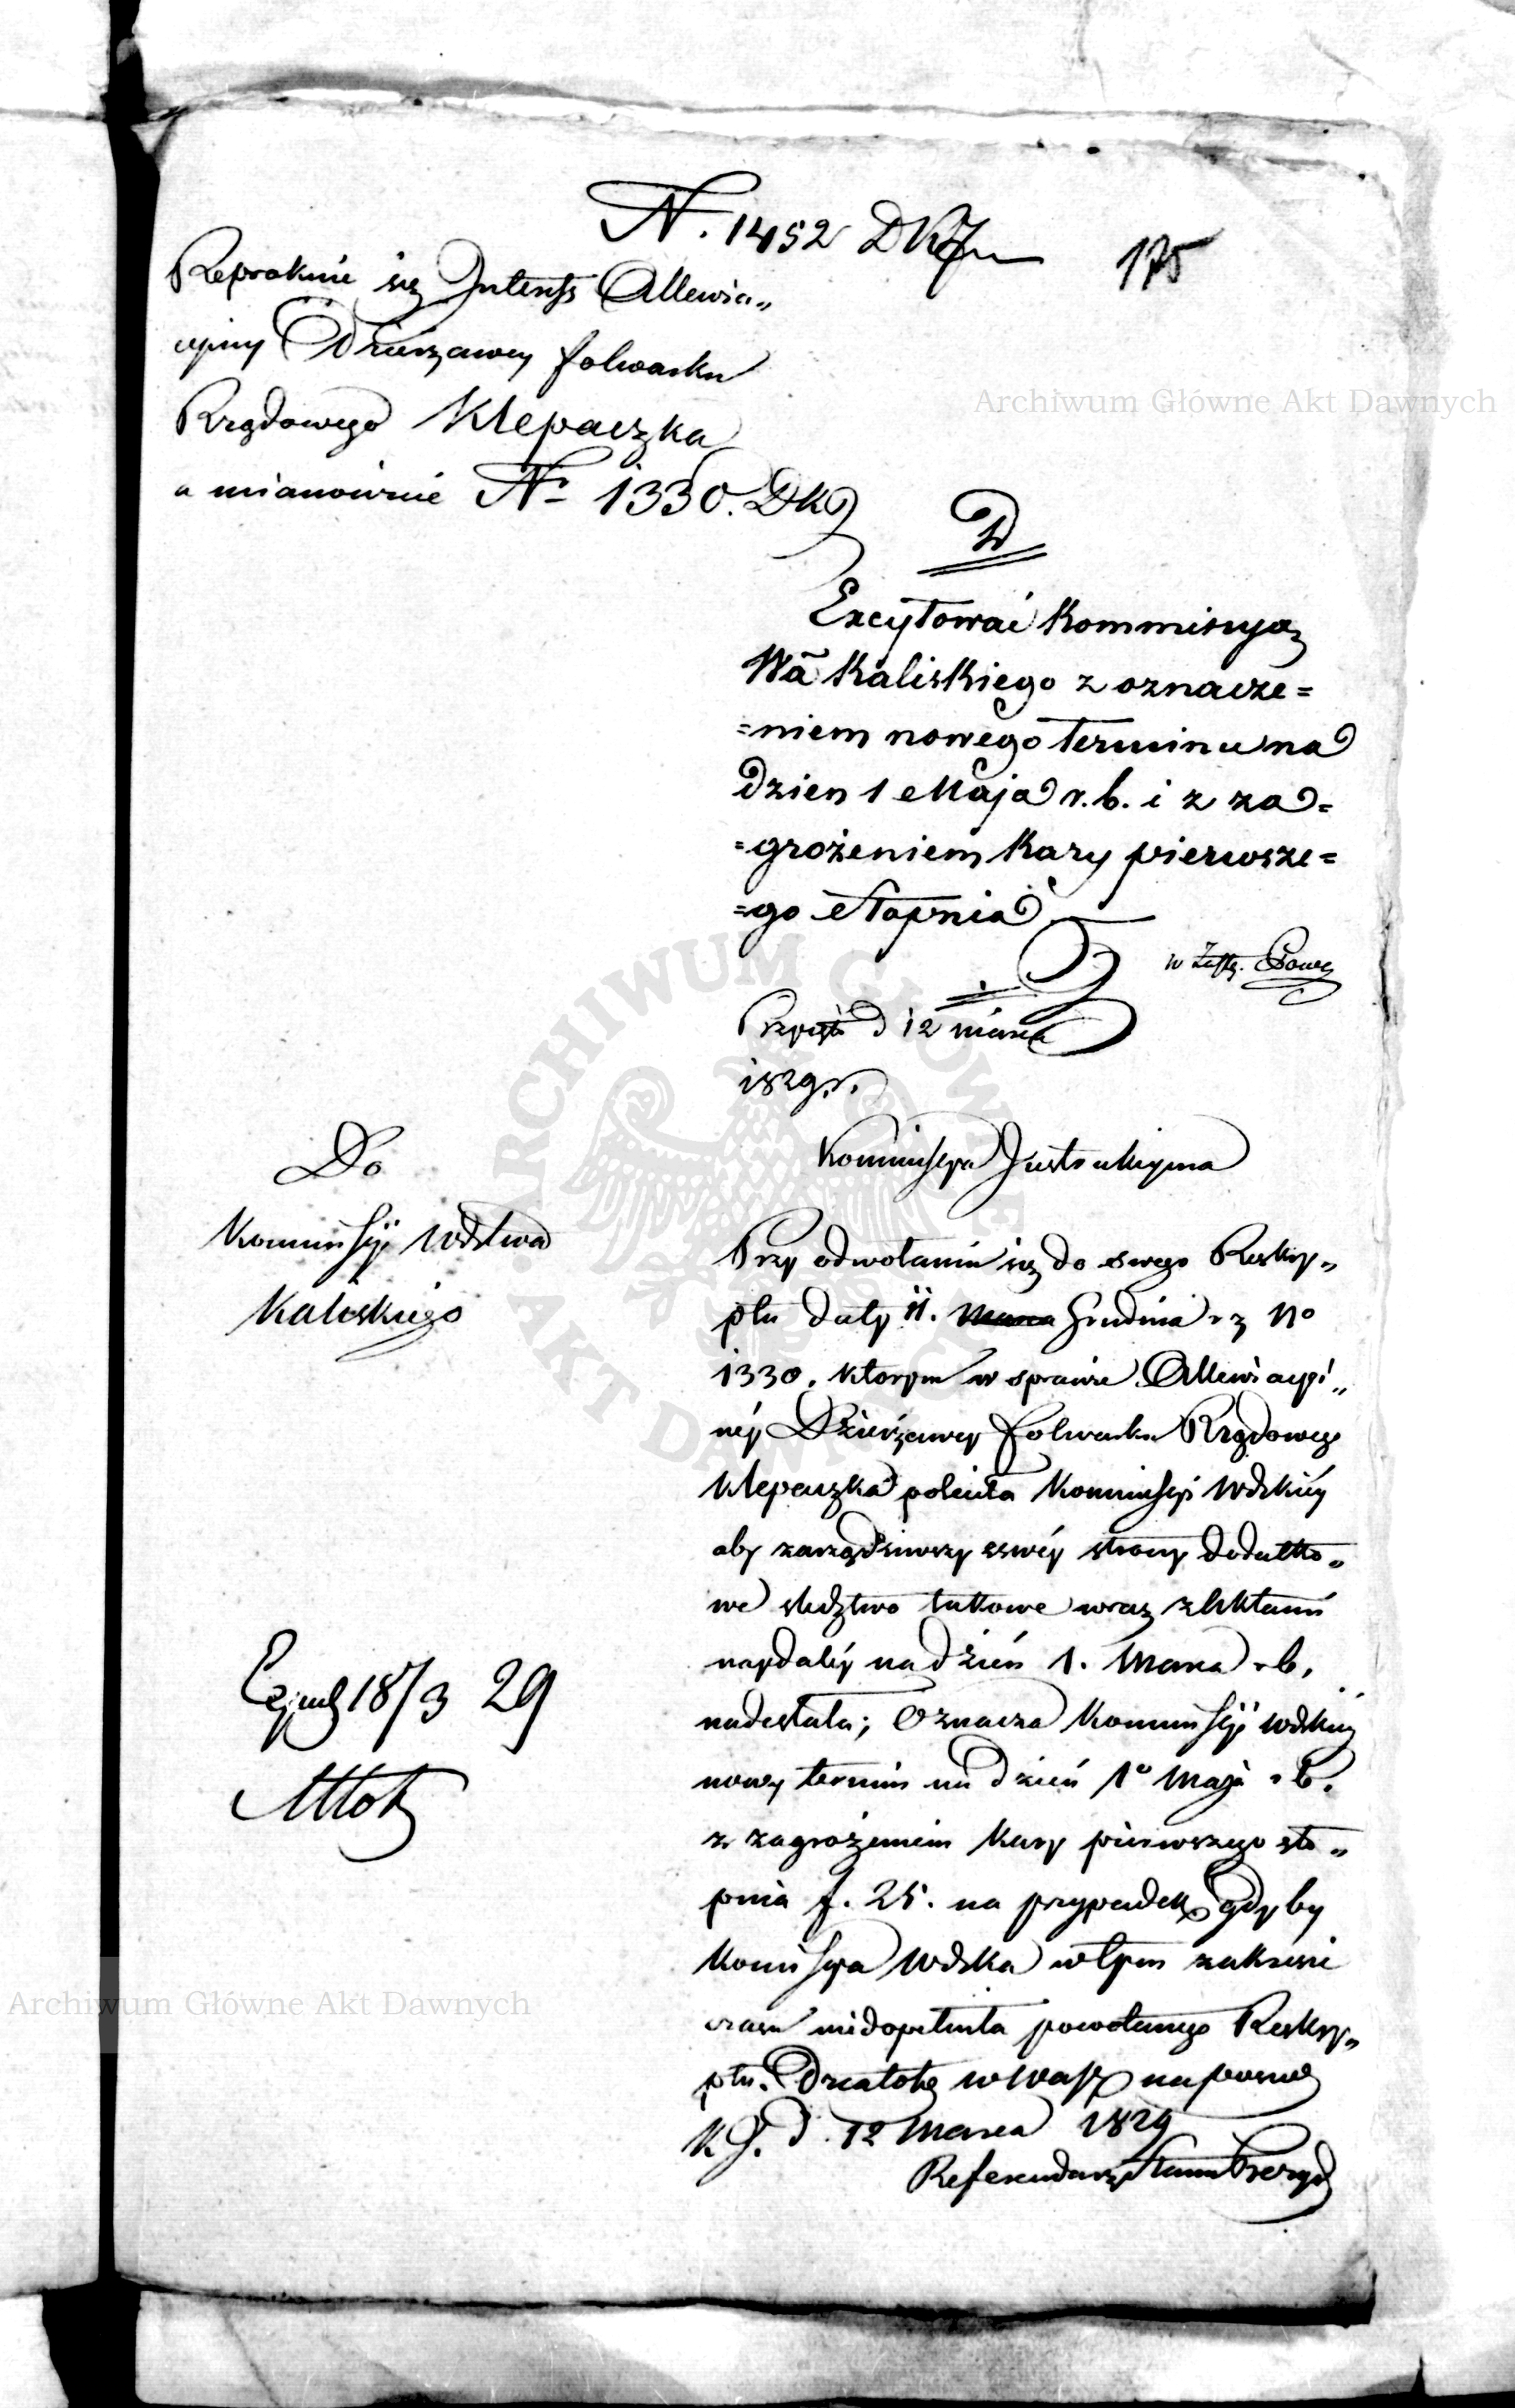 N. 1452 DKJ
175
Reprodukuie się Interess Allewia„
cyiny Dzierzawcy folwarku
Rządowego Klepaczka
a mianowicie No 1330. DKJ
D
Excytować Kommissyą
Wa Kaliskiego z oznacze=
=niem nowego terminu na
dzien 1 Maja r. b. i z za=
=grożeniem Kary pierwsze=
=go Stopnia
w Zastę.
Przyjęto d 12 marca
1829 r.
Do
Kommissyi Wdztwa
Kaliskiego
Kommissya Instrukcyjna
Przy odwołaniu się do swego Reskry„
ptu daty 11. Marca Grudnia r z No
1330. ktorym w sprawie Allewiacyi„
néy Dzierżawcy folwarku Rządowego
Klepaczka poleciła Kommissyi Wdzkiéy
aby zarządziwszy z swéy strony dodatko„
we śledztwo takowe wraz z Aktami
naydaléy na dzień 1. Marca r b.
nadesłała; Oznacza Kommissyi Wdzkiéy
nowy termin na dzień 1o Maja r. b.
z zagrożeniem Kary pierwszego sto„
pnia f. 25. na przypadek gdyby
Kommissya Wdzka w tym zakresie
czasu niedopełniła powołanego Reskry„
ptu. Działo się w Warsz na posied
K J. d. 12 Marca 1829
Referendarz Stanu
Exped 18/3 29
Archiwum Główne Akt Dawnych
ARCHIWUM GŁÓWNE AKT DAWNYCH
Archiwum Główne Akt Dawnych